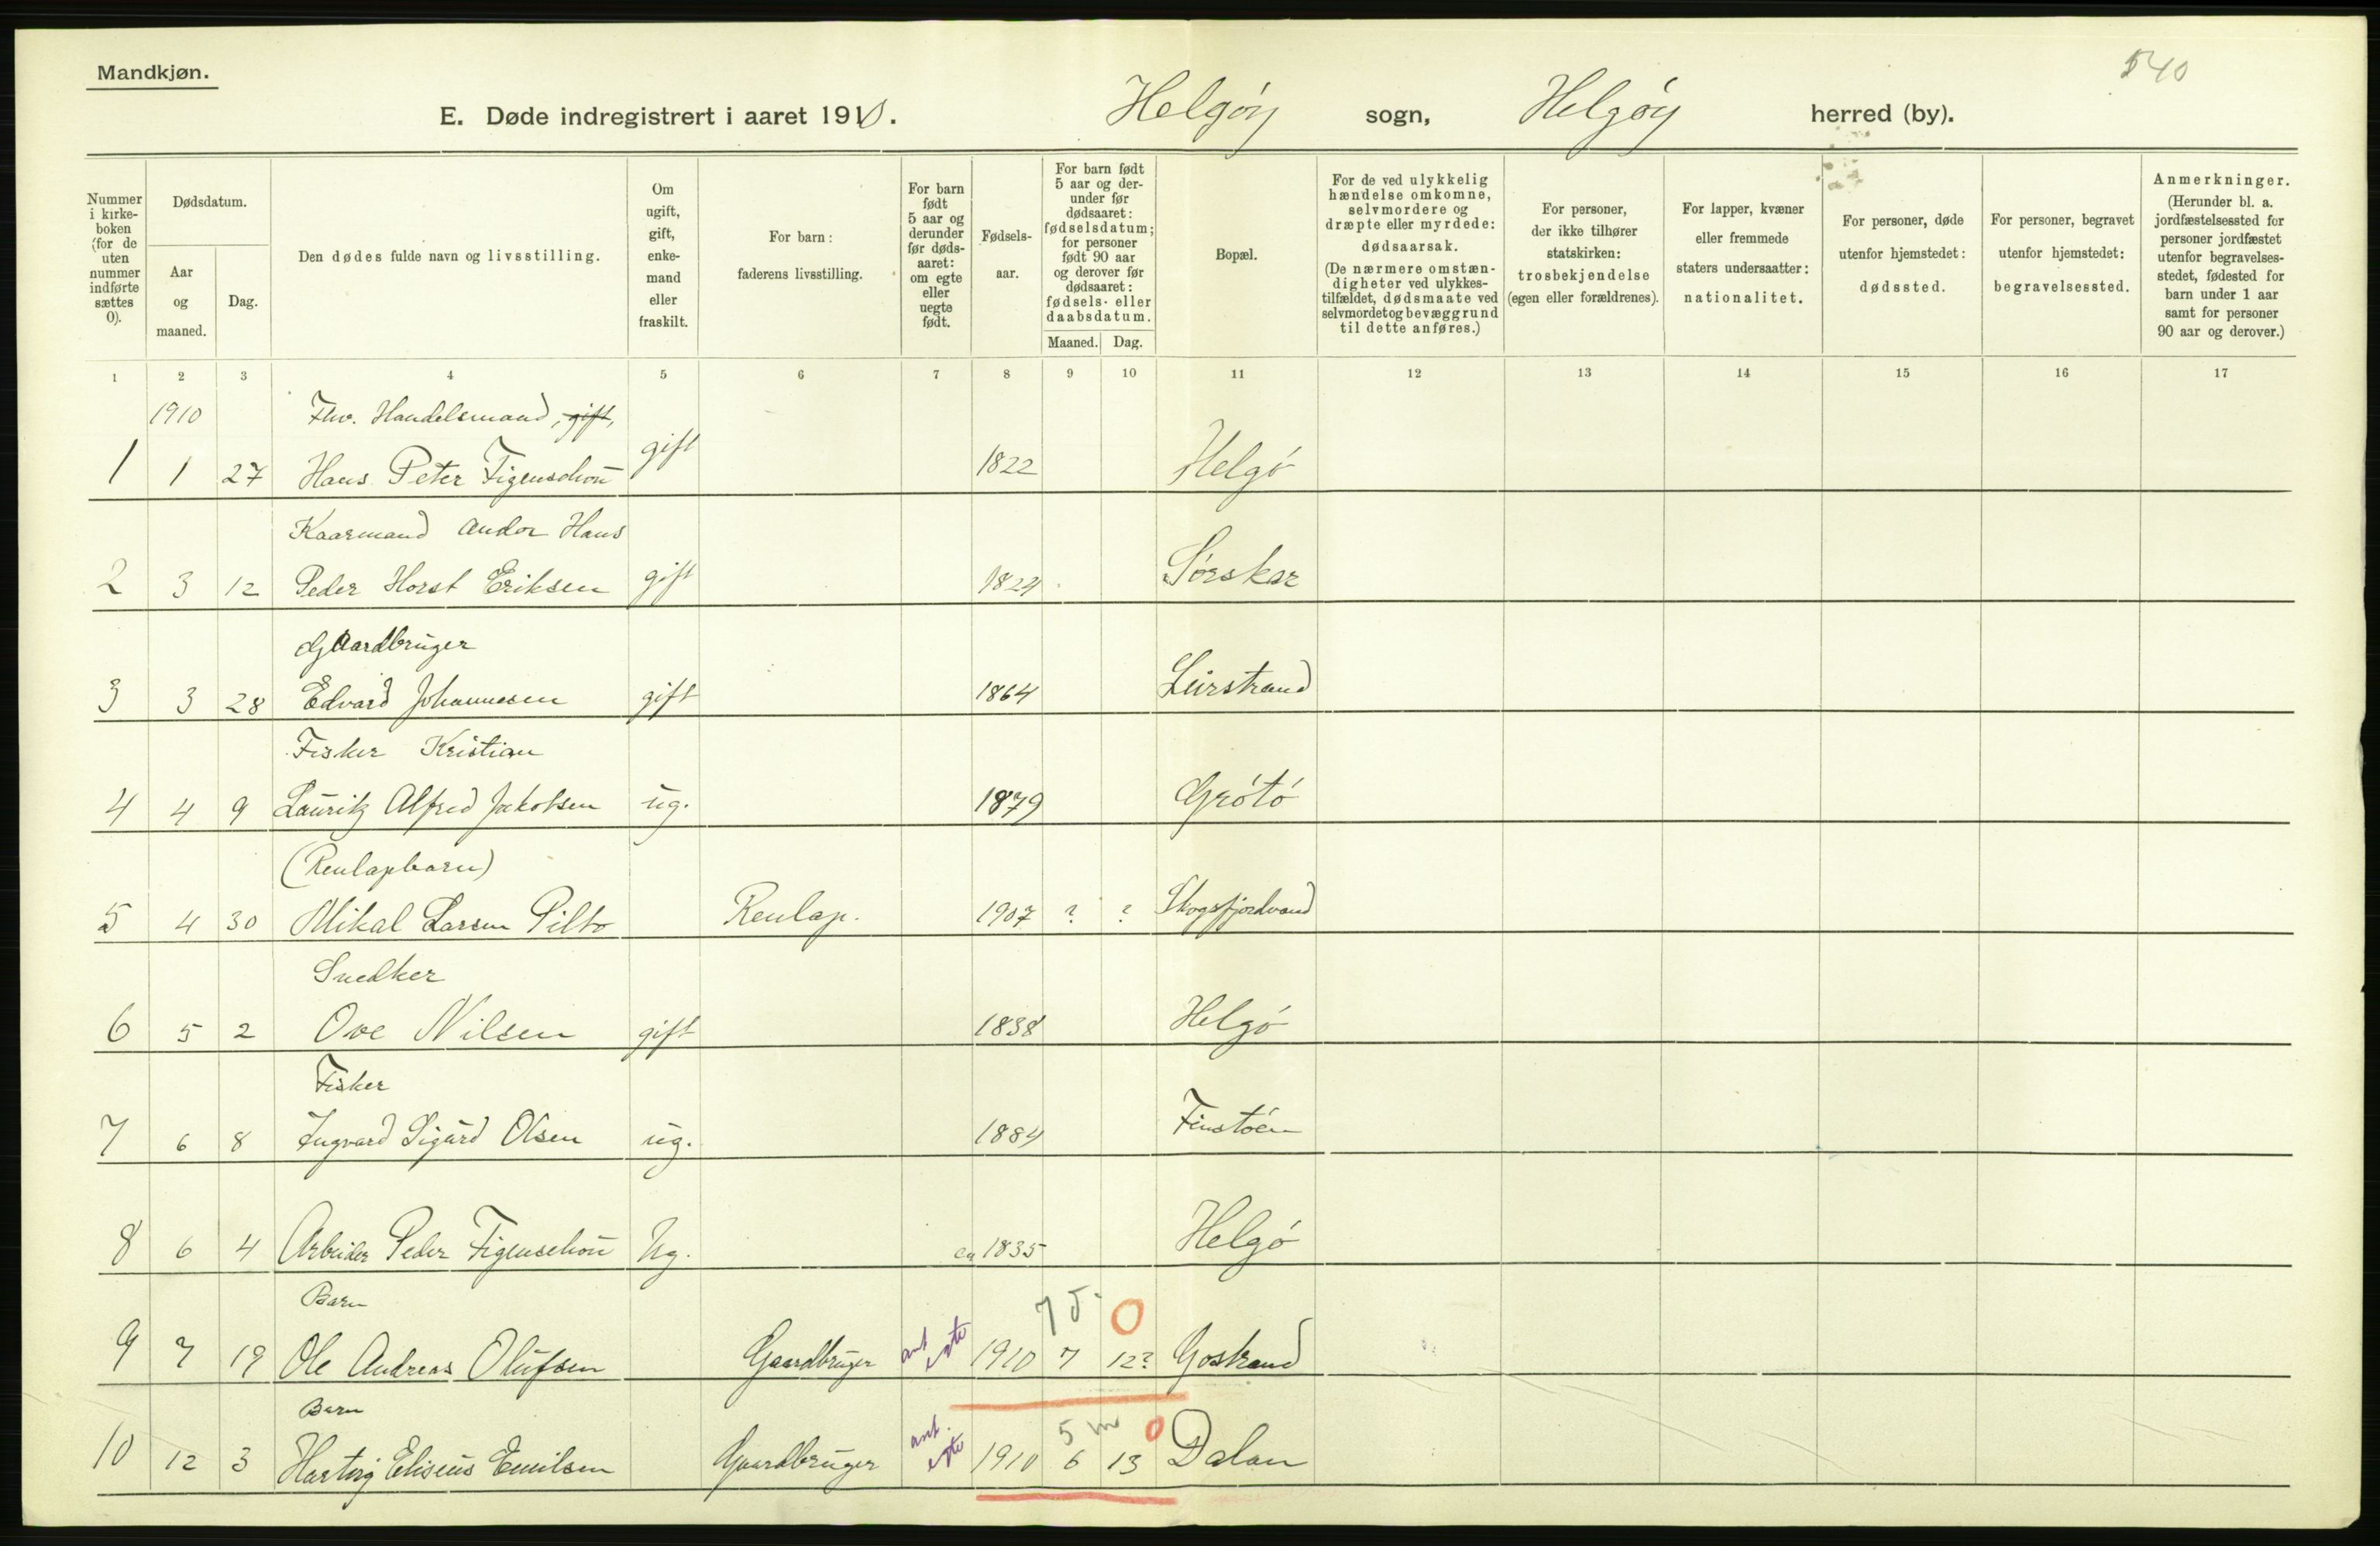 Mandkjøn.
540
E. Døde indregistrert i aaret 1910.
Helgøy sogn, Helgøy herred (by).
Nummer i kirke-boken (for de uten nummer indførte sættes 0).
Dødsdatum.
Aar og maaned.
Dag.
Den dødes fulde navn og livsstilling.
Om ugift, gift, enke-mand eller fraskilt.
For barn: faderens livsstilling.
For barn født 5 aar og derunder før døds-aaret: om egte eller uegte født.
Fødsels-aar.
For barn født 5 aar og der-under før dødsaaret: fødselsdatum; for personer født 90 aar og derover før dødsaaret: fødsels- eller daabsdatum.
Maaned. Dag.
Bopæl.
For de ved ulykkelig hændelse omkomne, selvmordere og dræpte eller myrdede: dødsaarsak. (De nærmere omstæn-digheter ved ulykkes-tilfældet, dødsmaate ved selvmordet og bevæggrund til dette anføres.)
For personer, der ikke tilhører statskirken: trosbekjendelse (egen eller forældrenes).
For lapper, kvæner eller fremmede staters undersaatter: nationalitet.
For personer, døde utenfor hjemstedet: dødssted.
For personer, begravet utenfor hjemstedet: begravelsessted.
Anmerkninger. (Herunder bl. a. jordfæstelsessted for personer jordfæstet utenfor begravelses-stedet, fødested for barn under 1 aar samt for personer 90 aar og derover.)
1 2 3 4 5 6 7 8 9 10 11 12 13 14 15 16 17
1910 Fhv. Handelsmand, gift,
1 1 27 Hans Peter Figenschou gift 1822 Helgó
Kaarmand Andor Hans
2 3 12 Peder Horst Eriksen gift 1824 Sórskar
Gaardbruger
3 3 28 Edvard Johannesen gift 1864 Leirstrand
Fisker Kristian
4 4 9 Lauritz Alfred Jakobsen ug. 1879 Grótó
(Renlapbarn)
5 4 30 Mikal Larsen Pilto Renlap. 1907 ? ? Skogsfjordvand
Snedker
6 5 2 Ove Nilsen gift 1838 Helgó
Fisker
7 6 8 Ingvard Sigurd Olsen ug. 1884 Finstóen
8 6 4 Arbeider Peder Figenschou Ug. ca 1835 Helgó
Barn 7 d. 0
9 7 19 Ole Andreas Olufsen Gaardbruger ant egte 1910 7 12? Gostrand
Barn 5 m 0
10 12 3 Hartvig Eliseus Emilsen Gaardbruger ant. egte 1910 6 13 Dalan